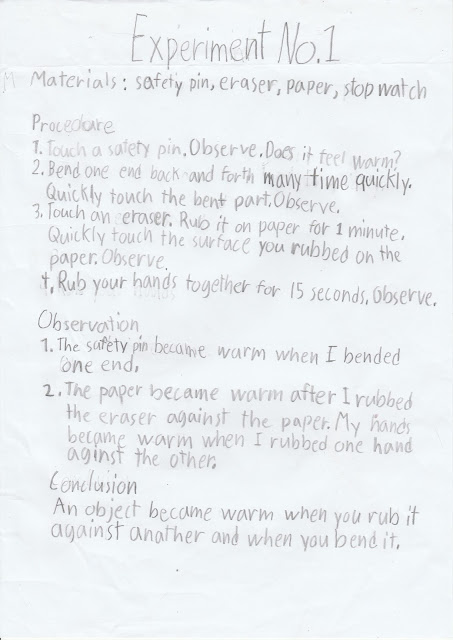 Experiment No.1
Materials: safety pin, eraser, paper, stop watch
Procedure
1. Touch a safety pin. Observe. Does it feel warm?
2. Bend one end back and forth many time quickly.
Quickly touch the bent part. Observe.
3. Touch an eraser. Rub it on paper for 1 minute.
Quickly touch the surface you rubbed on the
paper. Observe.
4. Rub your hands together for 15 seconds, Observe.
Observation
1. The safety pin became warm when I bended
one end.
2. The paper became warm after I rubbed
the eraser against the paper. My hands
became warm when I rubbed one hand
aginst the other.
Conclusion
An object became warm when you rub it
against anather and when you bend it.